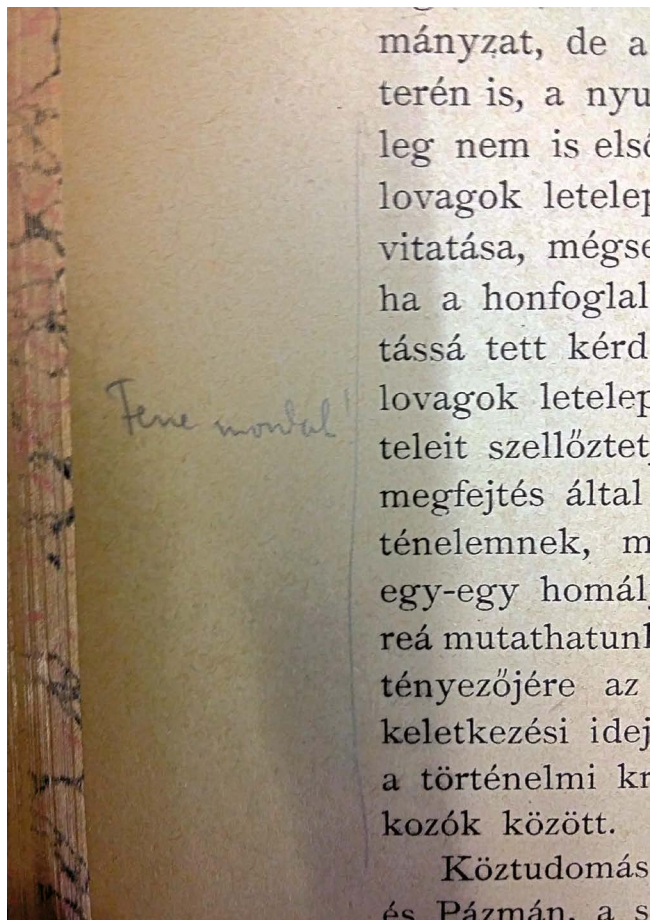 mányzat, de a
terén is, a nyu
leg nem is első
lovagok letelep
vitatása, mégse
ha a honfoglal
tássá tett kérd
Fene mondat!
lovagok letelep
teleit szellőztetj
megfejtés által
ténelemnek, m
egy-egy homály
reá mutathatunk
tényezőjére az
keletkezési idej
a történelmi kr
kozók között.
Köztudomás
és Pázmán, a s